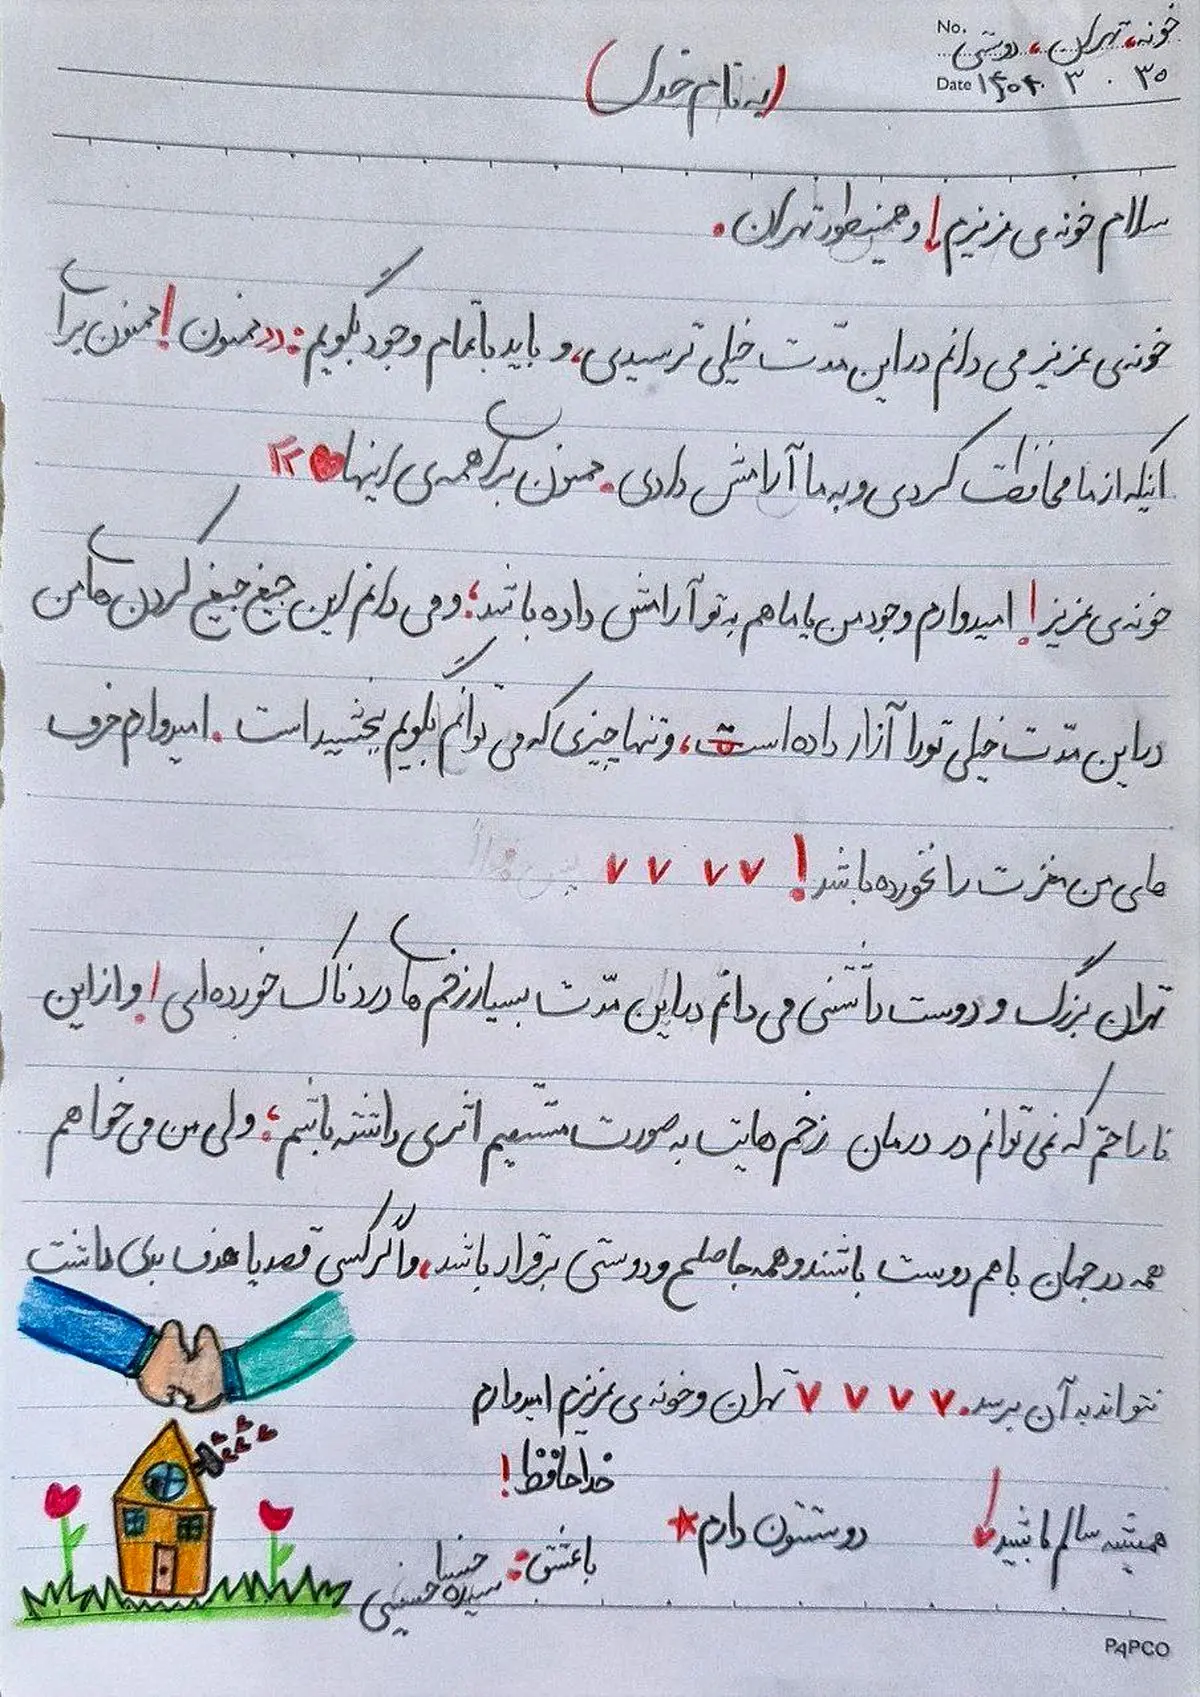 No. خونه، تهران، دوستی
Date ۱۴۰۴ ۳ ۳۰
(به نام خدا)
سلام خونه ی عزیزم! و همینطور تهران.
خونه ی عزیز می دانم در این مدّت خیلی ترسیدی، و باید با تمام وجود بگویم: «ممنون! ممنون برای
اینکه از ما محافظت کردی و به ما آرامش دادی. ممنون برای همه ی اینها»
خونه ی عزیز! امیدوارم وجود من یا ما هم به تو آرامش داده باشد؛ و می دانم این جیغ جیغ کردن های من
در این مدّت خیلی تو را آزار داده است، و تنها چیزی که می توانم بگویم ببخشید است. امیدوارم حرف
های من مغزت را نخورده باشد!
تهران بزرگ و دوست داشتنی می دانم در این مدّت بسیار زخم های دردناک خورده ای! و از این
ناراحتم که نمی توانم در درمان زخم هایت به صورت مستقیم اثری داشته باشم؛ ولی من می خواهم
همه در جهان با هم دوست باشند و همه جا صلح و دوستی برقرار باشد، و اگر کسی قصد یا هدف بدی داشت
نتواند به آن برسد. تهران و خونه ی عزیزم امیدوارم
همیشه سالم باشید! دوستتون دارم خداحافظ!
با عشق: حسنا
سیده حسینی
PAPCO